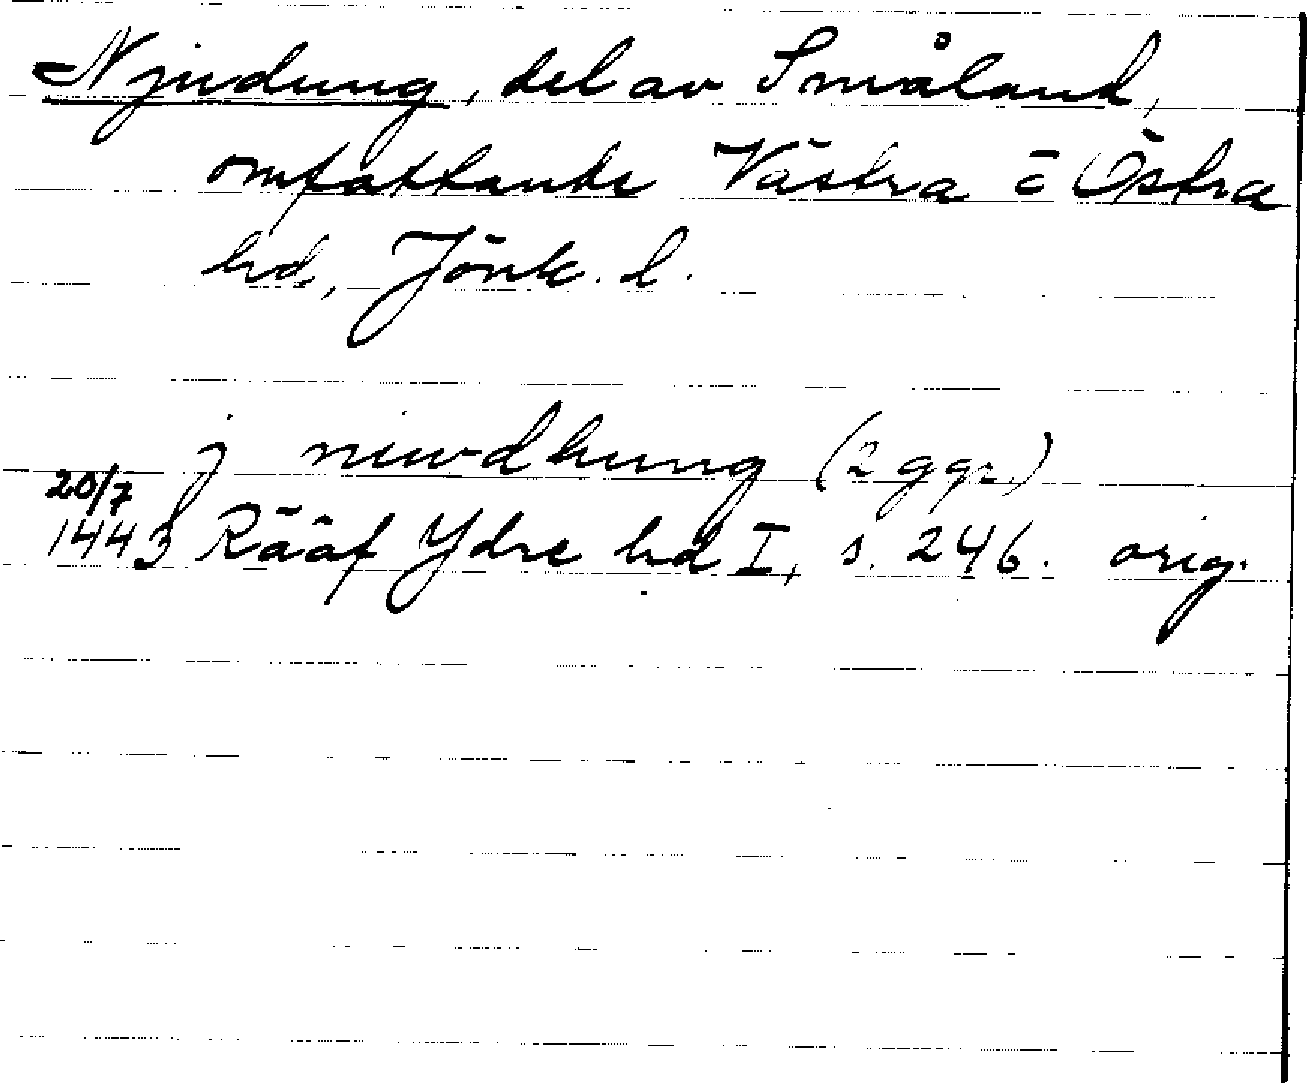 Njudung, del av Småland,
omfattande Västra o Östra
hd, Jönk. l.
j niwdhung (2 ggr.)
20/7
1443 Rääf Ydre hd I, s. 246. orig.